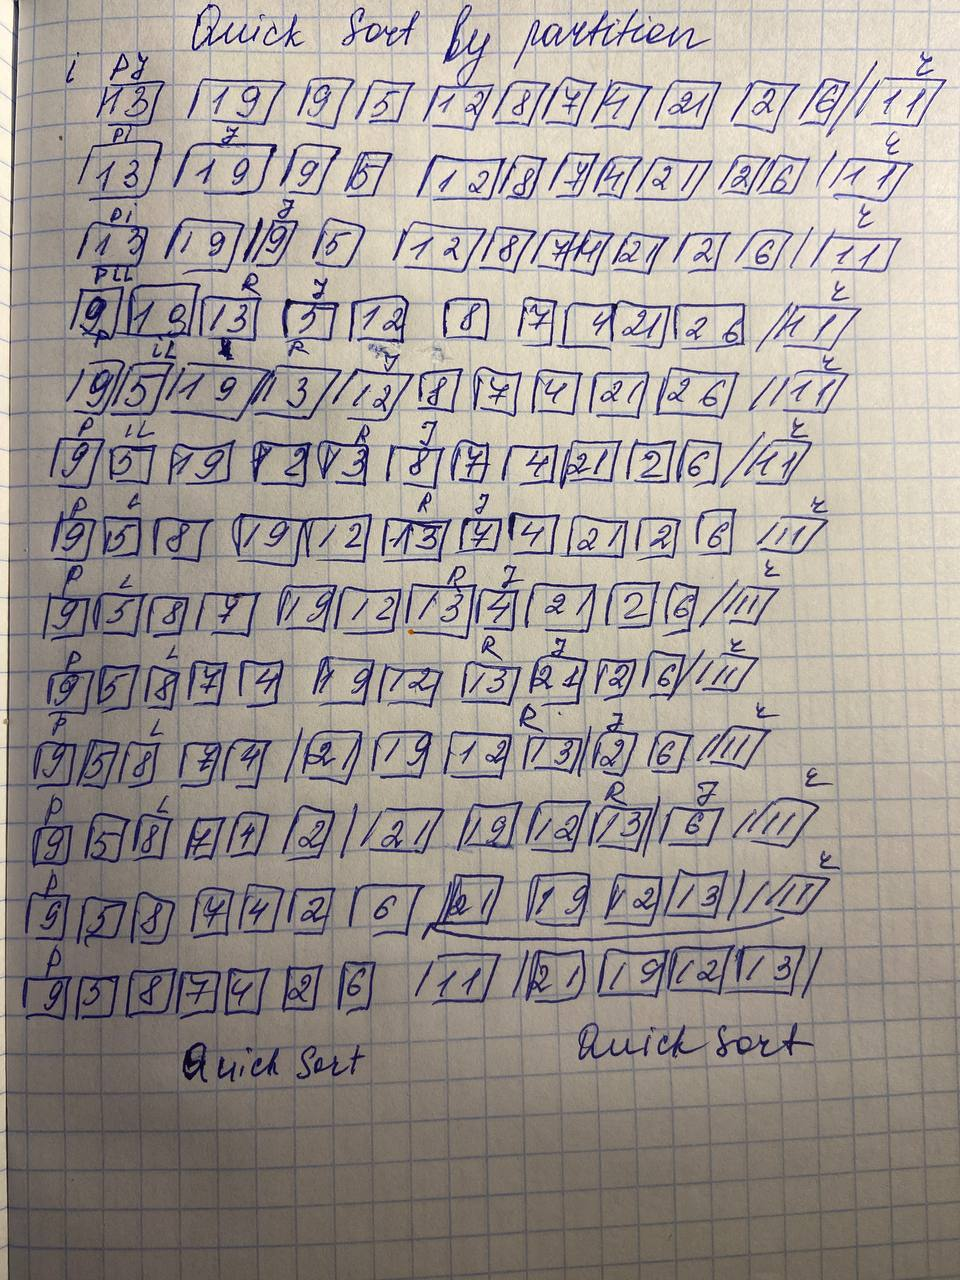 Quick Sort by partition
i PJ r
13 19 9 5 12 8 7 4 21 2 6 11
Pi J r
13 19 9 5 12 8 7 4 21 2 6 11
Pi J r
13 19 9 5 12 8 7 4 21 2 6 11
PiL R J r
9 19 13 5 12 8 7 4 21 2 6 11
P iL R J r
9 5 19 13 12 8 7 4 21 2 6 11
P iL R J r
9 5 19 12 13 8 7 4 21 2 6 11
P L R J r
9 5 8 19 12 13 7 4 21 2 6 11
P L R J r
9 5 8 7 19 12 13 4 21 2 6 11
P L R J r
9 5 8 7 4 19 12 13 21 2 6 11
P L R J r
9 5 8 7 4 21 19 12 13 2 6 11
P L R J r
9 5 8 7 4 2 21 19 12 13 6 11
P r
9 5 8 7 4 2 6 21 19 12 13 11
P
9 5 8 7 4 2 6 11 21 19 12 13
Quick Sort Quick Sort